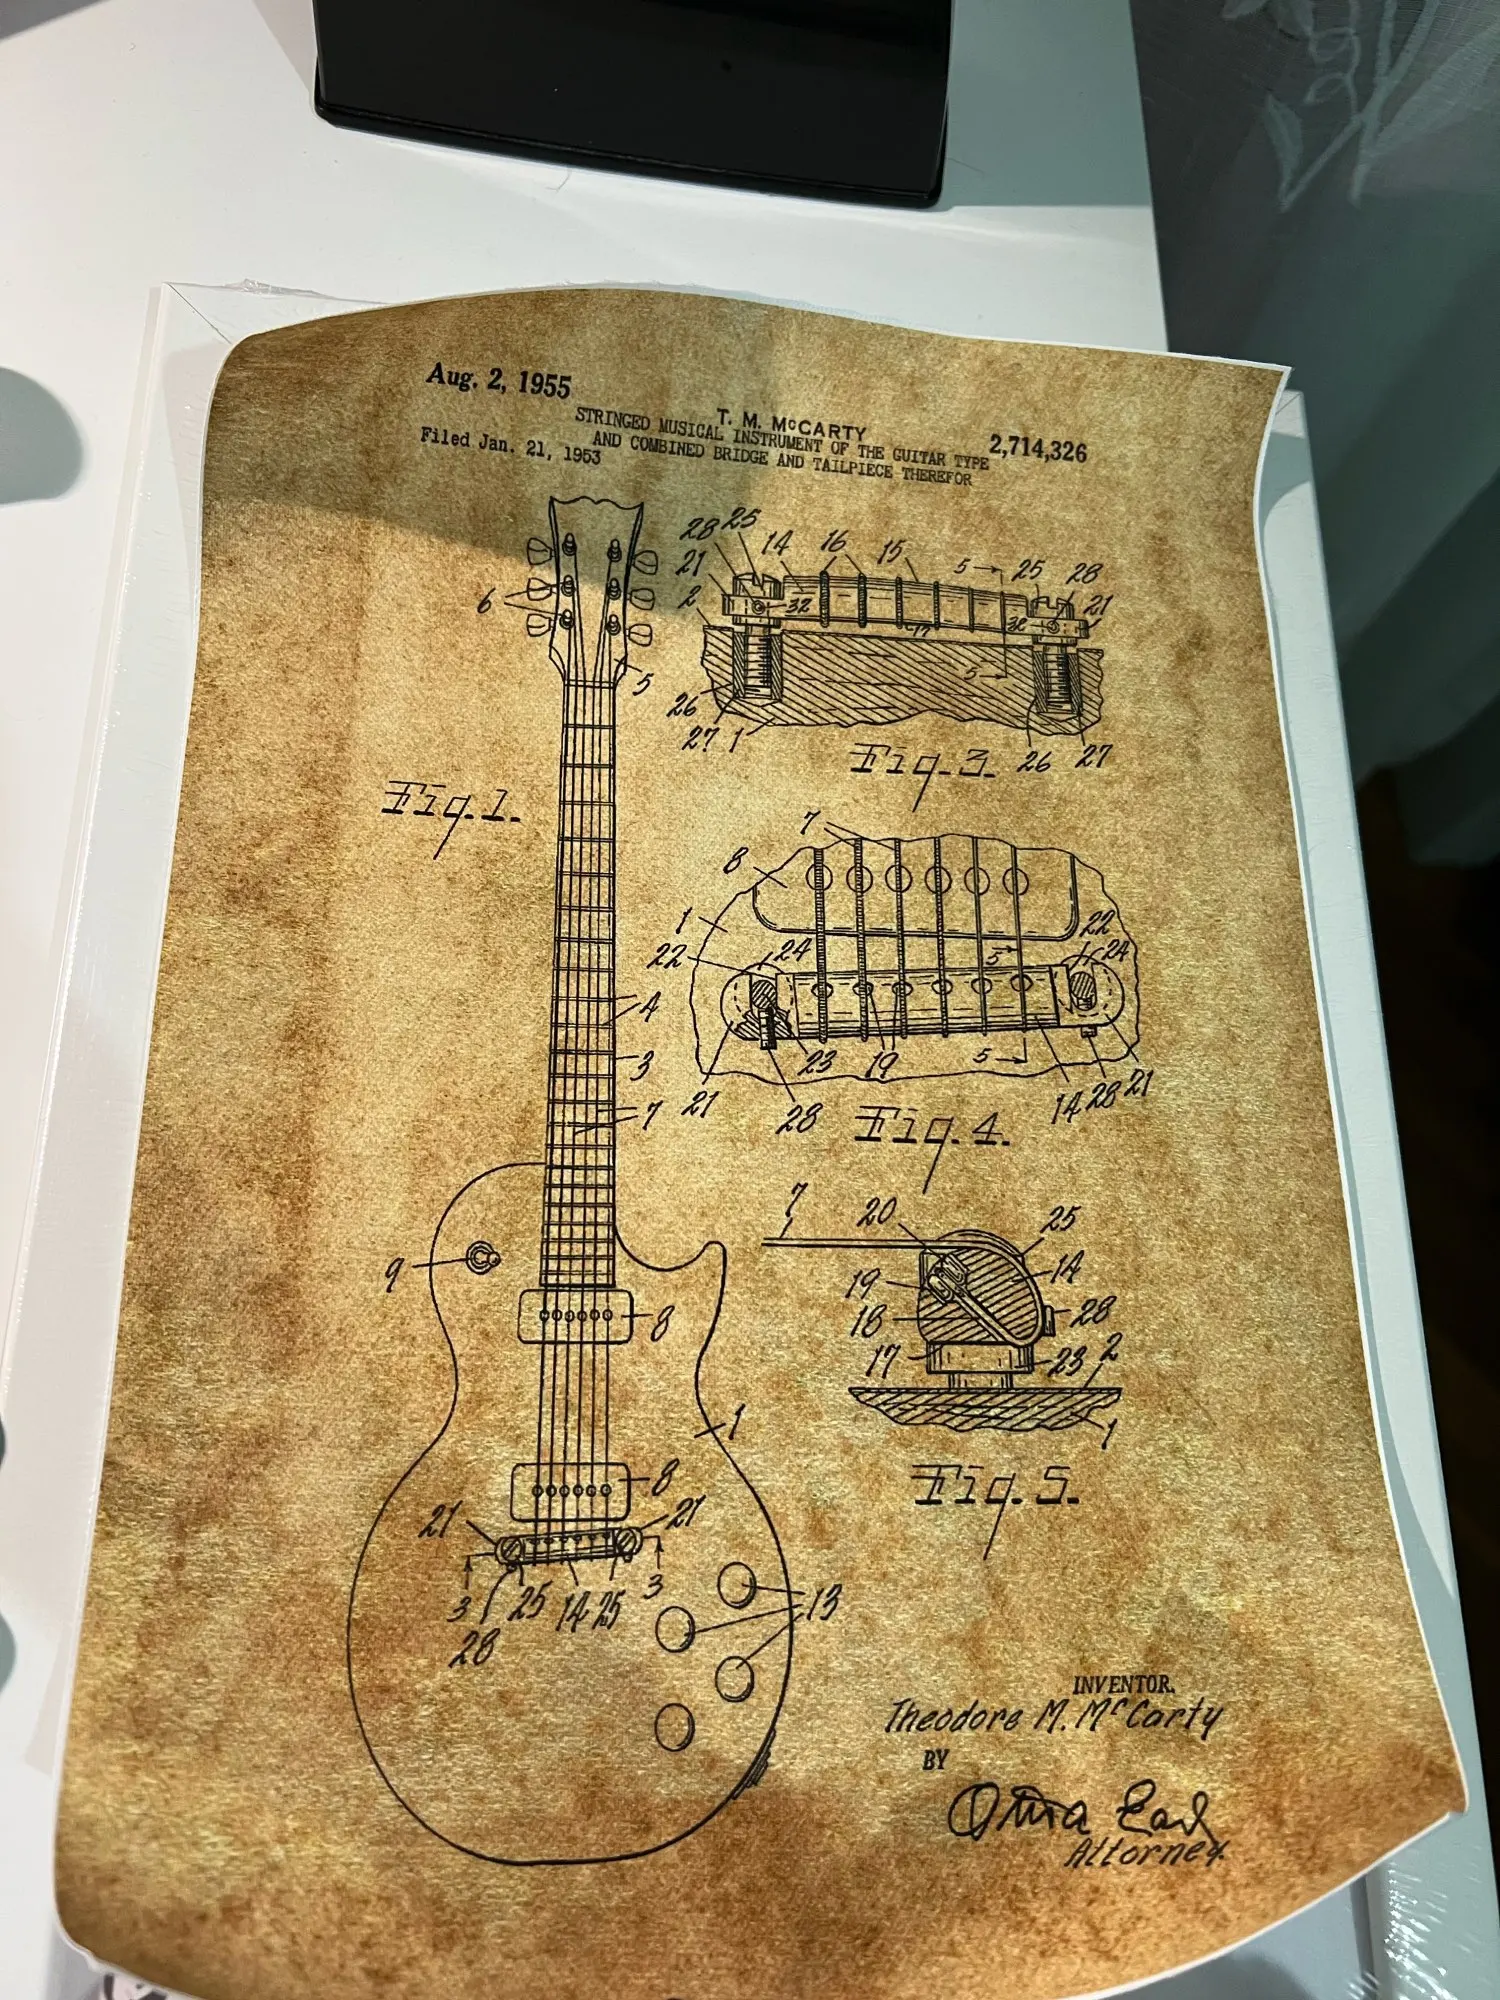 Aug. 2, 1955
T. M. McCARTY
2,714,326
STRINGED MUSICAL INSTRUMENT OF THE GUITAR TYPE
AND COMBINED BRIDGE AND TAILPIECE THEREFOR
Filed Jan. 21, 1953
28 25 14 16 15 5 25 28
21 21
2 32 32
17
6
5 5
26
27 1 26 27
Fig. 3.
Fig. 1.
7
8
1 22
22 24 5 24
4
3 23 19 5
7 21 28 14 28 21
Fig. 4.
7 20 25
9 19 14
8 18 28
17 23 2
1 1
Fig. 5.
8
21 21
3 25 14 25 3 13
28
INVENTOR.
Theodore M. McCarty
BY
Attorney.